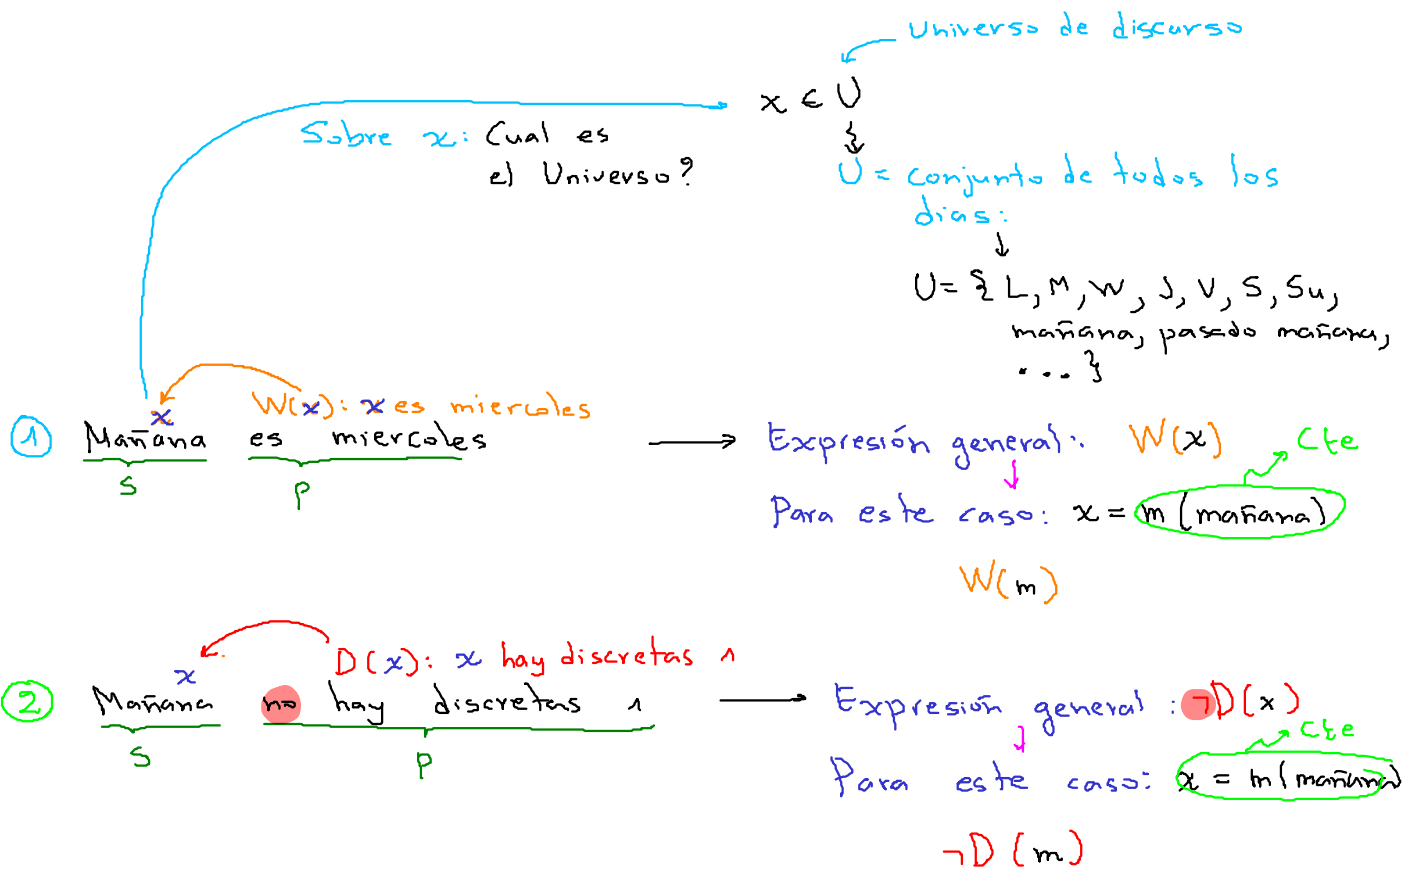 Universo de discurso
x ∈ U
Sobre x: Cual es
el Universo?
U = conjunto de todos los
dias:
U = { L, M, W, J, V, S, Su,
mañana, pasado mañana,
... }
W(x): x es miercoles
x
① Mañana es miercoles
S P
Expresión general: W(x)
Cte
Para este caso: x = m (mañana)
W(m)
D(x): x hay discretas 1
x
② Mañana no hay discretas 1
S P
Expresión general: ¬D(x)
Cte
Para este caso: x = m (mañana)
¬D(m)